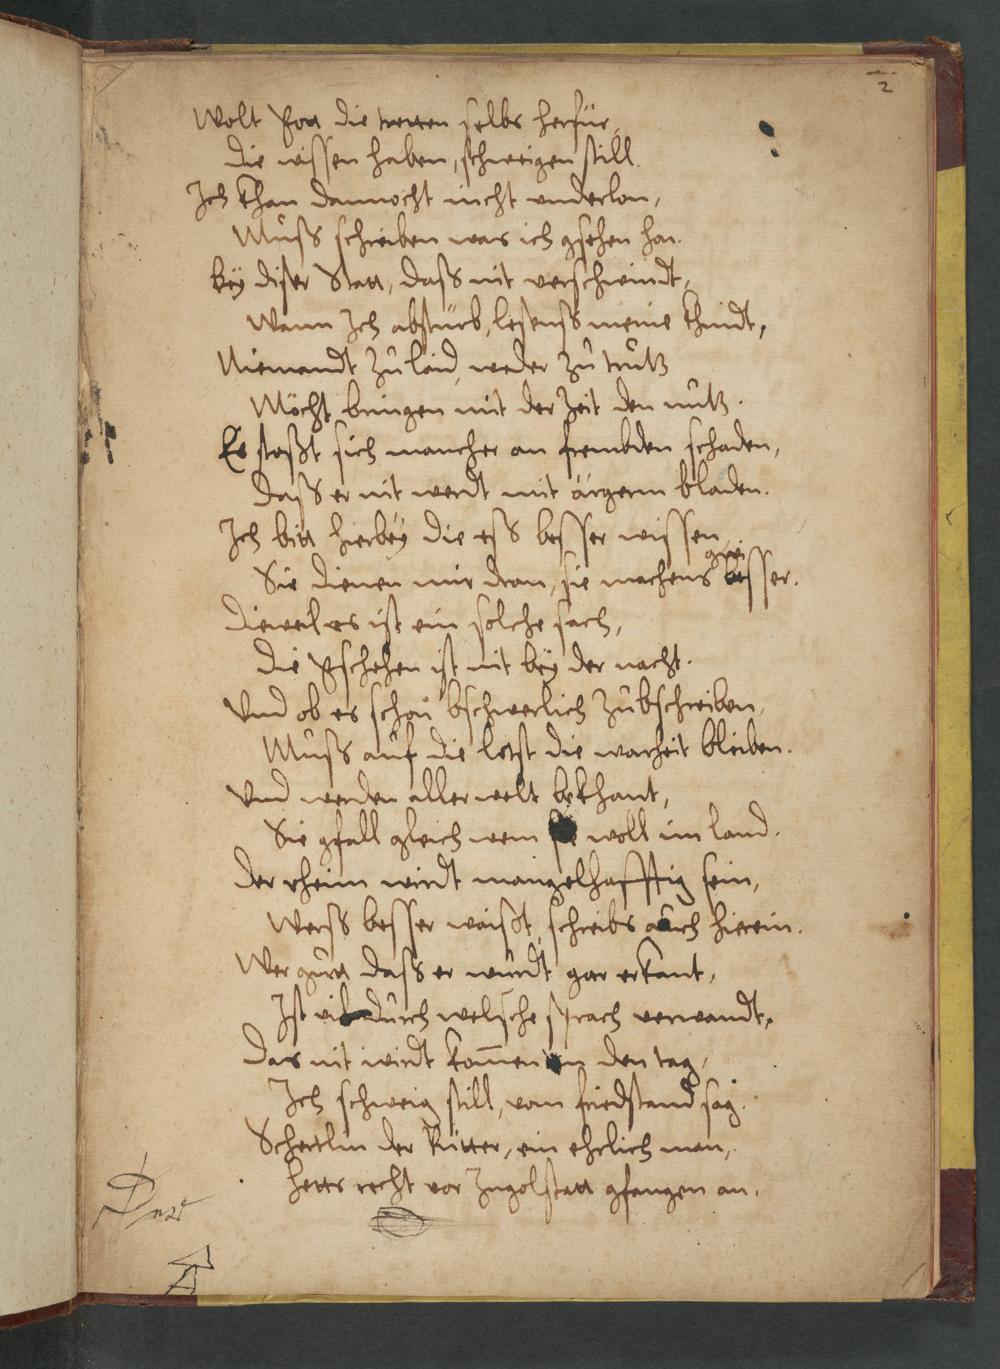 2
Wolt Gott die tretten selbs herfür,
die wissen haben, schweigen still.
Ich khan dannocht nicht underlon,
Muß schreiben was ich gsehen han.
bey diser Statt, daß nit verschwindt,
Wann Ich abstürb, lesenß meine khindt,
Niemandt zu laid, weder zu trutz
Möcht bringen mit der Zeit den nutz.
Es stoßt sich mancher an frembden schaden,
daß er nit werdt mit ärgerm bladen.
Ich bitt hierbey die eß besser wissen,
Sie dienen mir dran, sie machens besser.
dieweil es ist ein solche sach,
die gschehen ist nit bey der nacht.
Und ob es schon bschwerlich zubschreiben,
Muß auf die letst die warheit bleiben.
Und werden aller welt bekhant,
Sie gfall gleich wem sie woll im land.
der rheim wirdt mangelhafftig sein,
Werß besser waißt, schreibs auch hierein.
Wer gutt daß er wurdt gar erkant,
Ist vil durch welsche sprach verwandt,
das nit wirdt kommen an den tag,
Ich schweig still, vom friedstand sag.
Schertlin der Ritter, ein ehrlich man,
hetts recht vor Ingolstatt gfangen an.
Der